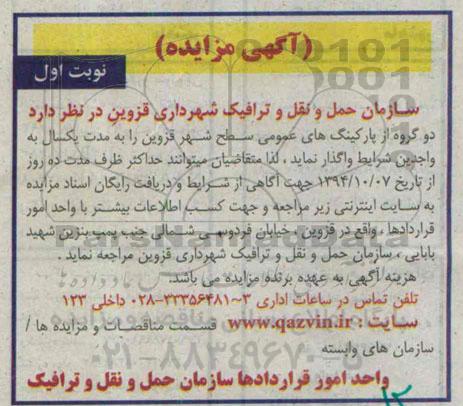 (آگهی مزایده)
نوبت اول
سازمان حمل و نقل و ترافیک شهرداری قزوین در نظر دارد
دو گروه از پارکینگ های عمومی سطح شهر قزوین را به مدت یکسال به
واجدین شرایط واگذار نماید ، لذا متقاضیان میتوانند حداکثر ظرف مدت ده روز
از تاریخ ۱۳۹۴/۱۰/۰۷ جهت آگاهی از شرایط و دریافت رایگان اسناد مزایده
به سایت اینترنتی زیر مراجعه و جهت کسب اطلاعات بیشتر با واحد امور
قراردادها ، واقع در قزوین ، خیابان فردوسی شمالی جنب پمپ بنزین شهید
بابایی ، سازمان حمل و نقل و ترافیک شهرداری قزوین مراجعه نماید .
هزینه آگهی به عهده برنده مزایده می باشد.
تلفن تماس در ساعات اداری ۳~۳۳۳۵۶۴۸۱-۰۲۸ داخلی ۱۲۳
سایت : www.qazvin.ir قسمت مناقصات و مزایده ها /
سازمان های وابسته
۰۲۱-۸۸۳۴۹۶۷۰
واحد امور قراردادها سازمان حمل و نقل و ترافیک
۱۲